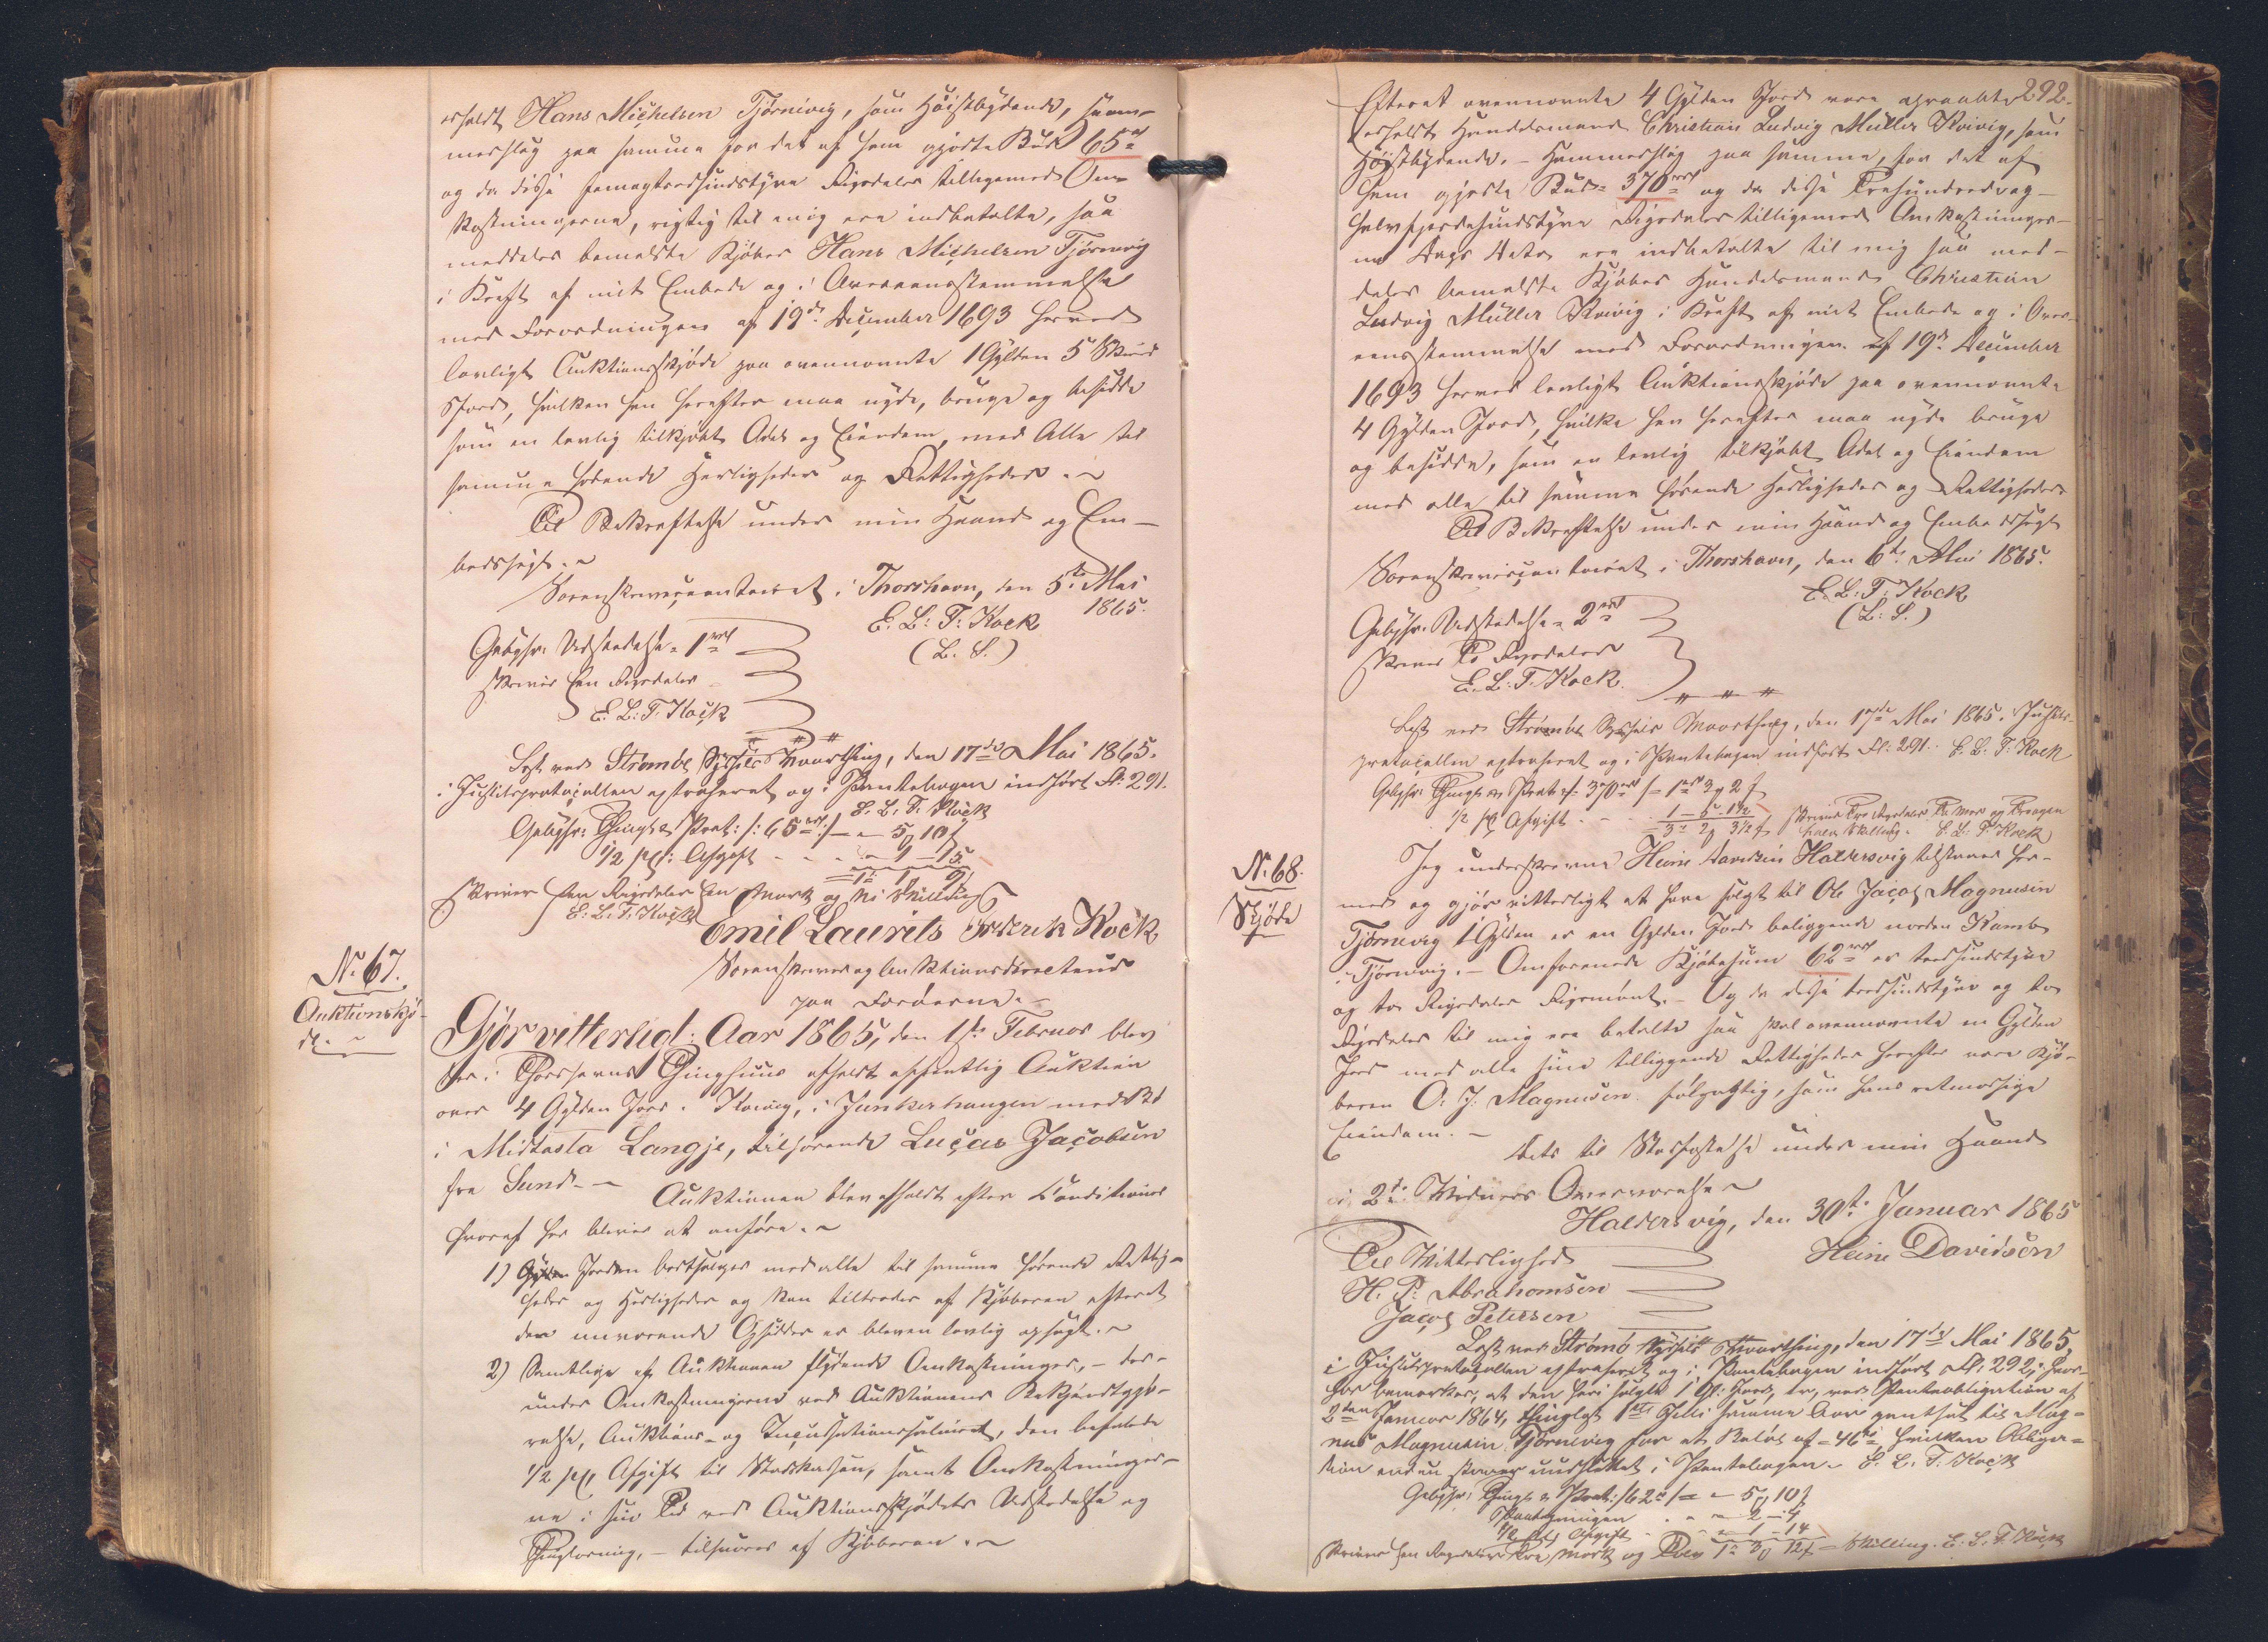 erholdt Hans Michelsen Tjørnivig, som Høistbydende, Ham-
merslag paa samme for det af ham gjorte Bud 65 rd
og da disse femogtredsindstyve Rigsdaler tilligemed Om-
kostningerne, rigtig til mig ere indbetalte, saa
meddeles bemeldte Kjøber Hans Michelsen Tjørnevig
i Kraft af mit Embede og i Overeensstemmelse
med Forordningen af 19de December 1693 herved
lovligt Auktionsskjøde paa ovennævnte 1 Gylden 5 Skind
Jord, hvilken han herefter maa nyde, bruge og besidde
som en lovlig tilkjøbt Odel og Eiendom, med Alle til
samme hørende Herligheder og Rettigheder.
Til Bekræftelse under min Haand og Em-
bedssegl.
Sorenskrivercontoiret i Thorshavn, den 5te Mai
1865.
E. L: T: Kock
(L. S.)
Gebyhr: Udstedelse 1 rd
skriver Een Rigsdaler
E. L: T. Kock
Læst ved Strømøe Syssels Vaarthing, den 17de Mai 1865.
i Justitsprotocollen extraheret og i Pantebogen indført Fol: 291.
E. L. T. Kock
Gebyhr: Thingl & Prot: /: 65 rd :/ - 5 10
1/2 pCt: Afgift - 1 - 15
1 1 9
skriver Een Rigsdaler Een Mark og Ni Skilling
E. L. T. Kock
Emil Laurits Frderik Kock
Sorenskriver og Auktionsdirecteur
paa Færøerne.
No 67.
Auktionskjø-
de.
Gjør vitterligt: Aar 1865, den 1ste Februar blev
her i Thorshavns Thinghuus afholdt offentlig Auktion
over 4 Gylden Jord i Kvivig, i Junkerhaugen med Bd
i Midtasta Langje, tilhørende Lucas Jacobsen
fra Sund.
Auktionen blev afholdt efter Conditioner
hvoraf her bliver at anføre.
1) Jorden bortsælges med alle til samme hørende Rettig-
heder og Herligheder og kan tiltrædes af Kjøberen efterat
den nuværende Opsidder er bleven lovlig opsagt.
2) Samtlige af Auktionen flydende Omkostninger, - der-
under Omkostningerne ved Auktionens Bekjendtgjø-
relse, Auktions- og Incassationssalairet, den befalede
1/2 pCt Afgift til Statskassen, samt Omkostninger-
ne i sin Tid ved Auktionsskjødets Udstedelse og
Thinglæsning, - tilsvares af Kjøberen.
292.
Efterat ovennævnte 4 Gylden Jord vare opraabte
erholdt Handelsmand Christian Ludvig Müller Kvivig, som
Høistbydende. - Hammerslag paa samme, for det af
ham gjorte Bud 370 rd og da disse Trehundredeog-
halvfjerdsindstyve Rigsdaler tilligemed Omkostninger-
ne Dags Dato ere indbetalte til mig saa med-
deles bemeldte Kjøber Handelsmand Christian
Ludvig Müller Kvivig i Kraft af mit Embede og i Over-
eensstemmelse med Forordningen af 19de December
1693 herved lovligt Auktionsskjøde paa ovennævnte
4 Gylden Jord, hvilke han herefter maa nyde bruge
og besidde, som en lovlig tilkjøbt Odel og Eiendom
med alle til samme hørende Herligheder og Rettigheder
Til Bekræftelse under min Haand og Embedssegl
Sorenskrivercontoiret i Thorshavn, den 6te Mai 1865.
E. L: T: Kock
(L: S.)
Gebyhr: Udstedelse 2 rd
skriver To Rigsdaler
E. L. T. Kock.
Læst ved Strømøe Syssels Vaarthing, den 17de Mai 1865. Justits-
protocollen extraheret og i Pantebogen indført Fol: 291. E. L: T: Kock
Gebyhr: Thingl og Prot: /: 370 rd :/ 1 rd 3 2
1/2 pCt Afgift 1 - 5 - 1 1/2
3 2 3 1/2
skriver Tre Rigsdaler To Mark og Tre og en
halv Skilling. E. L: T: Kock
No 68.
Skjøde
Jeg underskrevne Heine Davidsen Haldersvig tilstaaer her-
med og gjør vitterligt at have solgt til Ole Jacob Magnusen
Tjørnevig 1 Gylden er en Gylden Jord beliggende norden Kamb
i Tjørnevig. - Omforenede Kjøbesum 62 rd er tredsindstyve
og to Rigsdaler Rigsmønt. - Og da disse tredsindstyve og to
Rigsdaler til mig ere betalte saa skal ovennævnte en Gylden
Jord med alle sine tilliggende Rettigheder herefter være Kjø-
beren O. J. Magnusen følgagtig, som hans retmæssige
Eiendom.
Dets til Stadfæstelse under min Haand
i 2de Vidners Overværelse
Haldersvig, den 30te Januar 1865
Heine Davidsen
Til Vitterlighed
H. P: Abrahamsen
Jacob Petersen
Læst ved Strømø Syssels Vaarthing, den 17de Mai 1865,
i Justitsprotocollen extraheret og i Pantebogen indført Fol: 292; hvor-
hos bemærkes, at den heri solgte 1 Gl: Jord, er, ved Panteobligation af
2den Januar 1864, thinglyst 1ste Juli samme Aar pantsat til Mag-
nus Magnusen Tjørnevig for et Beløb af 46 rd, hvilken Obliga-
tion endnu staaer uudslettet i Pantebogen. E. L. T. Kock
Gebyhr: Thingl & Prot: /: 62 rd :/ - 5 10
Paategningen - 2 - 4
1/2 pCt Afgift - 1 - 14
skriver Een Rigsdaler Tre Mark og Tolv 1 3 12 Skilling. E. L. T. Kock